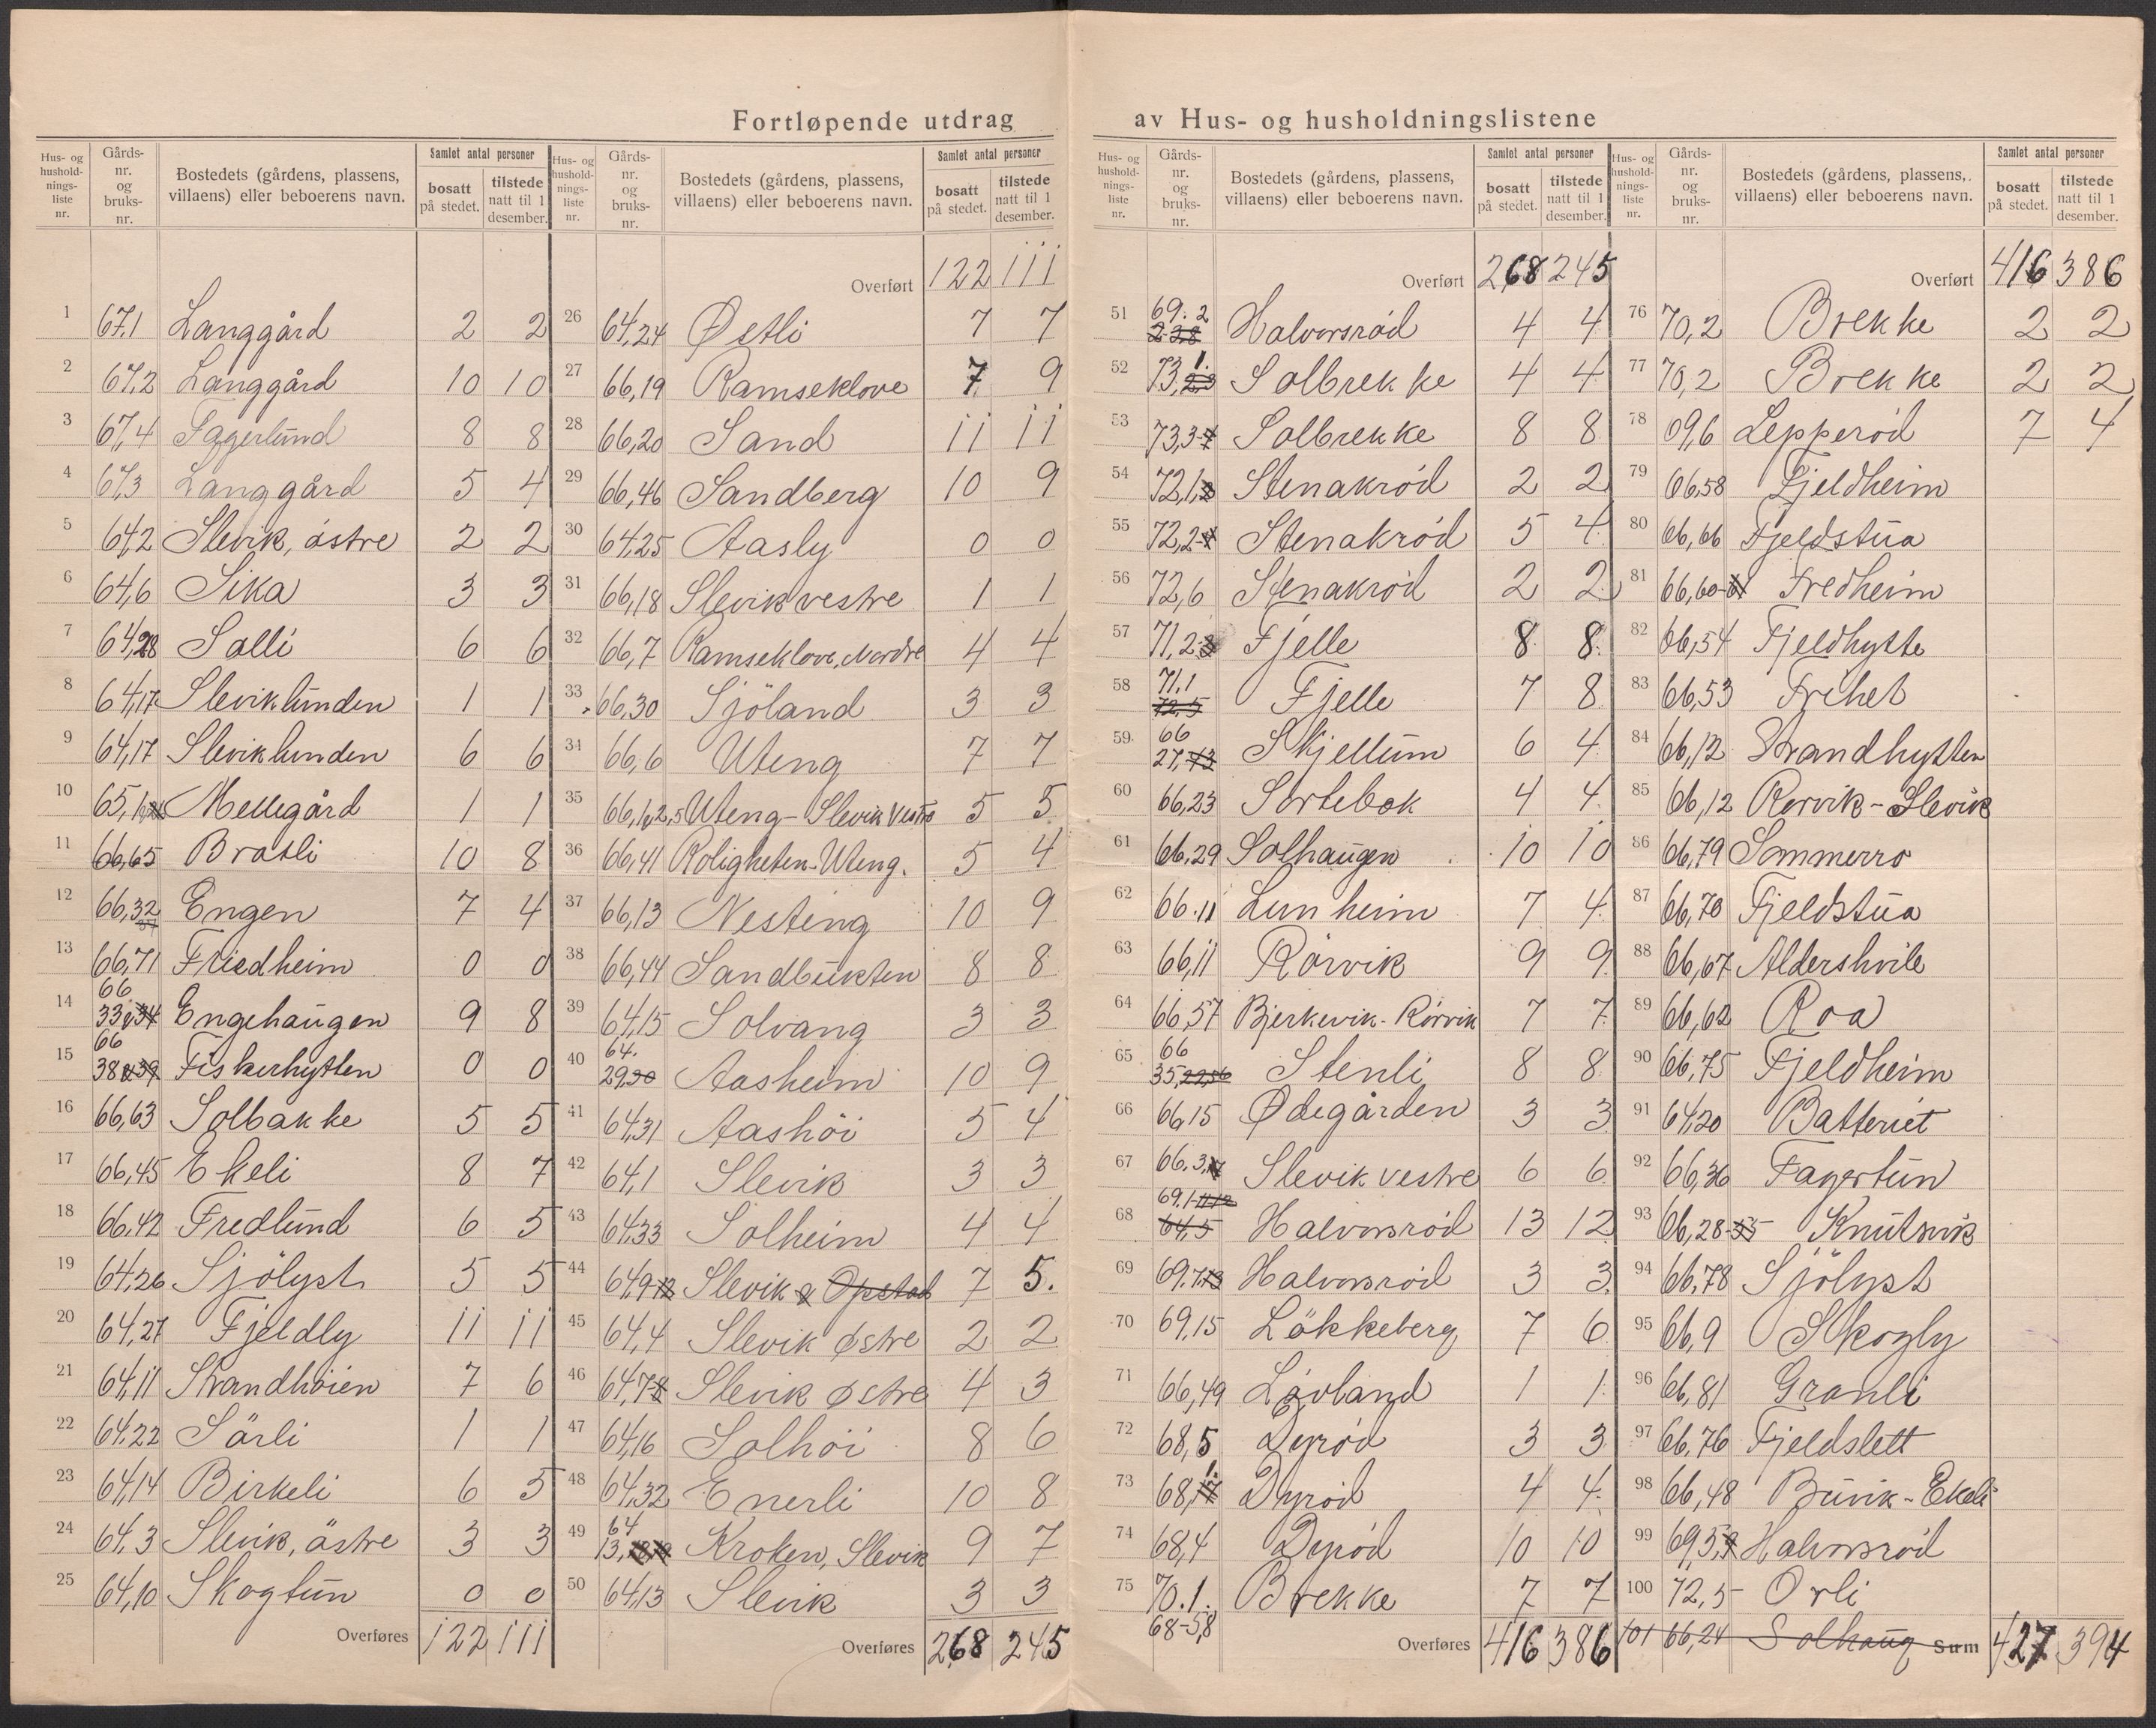 Fortløpende utdrag av Hus- og husholdningslistene
Hus- og hushold-nings-liste nr. Gårds-nr. og bruks-nr. Bostedets (gårdens, plassens, villaens) eller beboerens navn. Samlet antal personer bosatt på stedet. tilstede natt til 1 desember.
1 67,1 Langgård 2 2
2 67,2 Langgård 10 10
3 67,4 Fagerlund 8 8
4 67,3 Langgård 5 4
5 64,2 Slevik, östre 2 2
6 64,6 Sika 3 3
7 64,28 Salli 6 6
8 64,17 Sleviklunden 1 1
9 64,17 Sleviklunden 6 6
10 65,1 Mellegård 1 1
11 66,65 Bratli 10 8
12 66,32 Engen 7 4
13 66,71 Friedheim 0 0
14 66 33 & 34 Engehaugen 9 8
15 66 38 & 39 Fiskerhytten 0 0
16 66,63 Solbakke 5 5
17 66,45 Ekeli 8 7
18 66,42 Fredlund 6 5
19 64,26 Sjölyst 5 5
20 64,27 Fjeldly 11 11
21 64,11 Strandhöien 7 6
22 64,22 Sörli 1 1
23 64,14 Birkeli 6 5
24 64,3 Slevik, östre 3 3
25 64,10 Skogtun 0 0
Overføres 122 111
Hus- og hushold-nings-liste nr. Gårds-nr. og bruks-nr. Bostedets (gårdens, plassens, villaens) eller beboerens navn. Samlet antal personer bosatt på stedet. tilstede natt til 1 desember.
Overført 122 111
26 64,24 Østli 7 7
27 66,19 Ramseklove 7 9
28 66,20 Sand 11 11
29 66,46 Sandberg 10 9
30 64,25 Aasly 0 0
31 66,18 Slevik vestre 1 1
32 66,7 Ramseklove, Nordre 4 4
33 66,30 Sjöland 3 3
34 66,6 Uteng 7 7
35 66,1,2,5 Uteng - Slevik Vestre 5 5
36 66,41 Roligheten - Uteng. 5 4
37 66,13 Nesteng 10 9
38 66,44 Sandbukten 8 8
39 64,15 Solvang 3 3
40 64. 29,30 Aasheim 10 9
41 64,31 Aashöi 5 4
42 64,1 Slevik 3 3
43 64,33 Solheim 4 4
44 64,9-12 Slevik & Opstad 7 5.
45 64,4 Slevik østre 2 2
46 64,7-8 Slevik østre 4 3
47 64,16 Solhöi 8 6
48 64,32 Enerli 10 8
49 64 13, Kroken, Slevik 9 7
50 64,13 Slevik 3 3
Overføres 268 245
Hus- og hushold-nings-liste nr. Gårds-nr. og bruks-nr. Bostedets (gårdens, plassens, villaens) eller beboerens navn. Samlet antal personer bosatt på stedet. tilstede natt til 1 desember.
Overført 268 245
51 69.2 2-3,8 Halvorsröd 4 4
52 73,1. Solbrekke 4 4
53 73,3-4 Solbrekke 8 8
54 72,1, Stenakröd 2 2
55 72,2-4 Stenakröd 5 4
56 72,6 Stenakröd 2 2
57 71,2 Fjelle 8 8
58 71.1 72,5 Fjelle 7 8
59 66 27, 43 Skjellum 6 4
60 66,23 Sortebek 4 4
61 66,29 Solhaugen 10 10
62 66.11 Lunheim 7 4
63 66,11 Rörvik 9 9
64 66,57 Bjerkevik - Rörvik 7 7
65 66 35, Stenli 8 8
66 66,15 Ødegården 3 3
67 66,3 Slevik vestre 6 6
68 69.1-11-12 64,5 Halvorsröd 13 12
69 69.7,13 Halvorsröd 3 3
70 69,15 Lökkeberg 7 6
71 66,49 Lövland 1 1
72 68,5 Dyröd 3 3
73 68,1 Dyröd 4 4
74 68,4 Dyröd 10 10
75 70.1. 68-5,8 Brekke 7 7
Overføres 416 386
Hus- og hushold-nings-liste nr. Gårds-nr. og bruks-nr. Bostedets (gårdens, plassens, villaens) eller beboerens navn. Samlet antal personer bosatt på stedet. tilstede natt til 1 desember.
Overført 416 386
76 70,2 Brekke 2 2
77 70,2 Brekke 2 2
78 69,6 Lepperöd 7 4
79 66,58 Fjeldheim
80 66,66 Fjeldstua
81 66,60-61 Fredheim
82 66,54 Fjeldhytte
83 66,53 Frehet
84 66,12 Strandhytten
85 66,12 Rørvik - Slevik
86 66,79 Sommerro
87 66,70 Fjeldstua
88 66,67 Aldershvile
89 66,62 Roa
90 66,75 Fjeldheim
91 64,20 Batteriet
92 66,36 Fagertun
93 66,28-55 Knutsvik
94 66,78 Sjölyst
95 66,9 Skogly
96 66,81 Granli
97 66,76 Fjeldslett
98 66,48 Buvik - Ekeli
99 69,5,9 Halvorsröd
100 72,5 Orli
101 66,24 Solhaug Sum 427 394